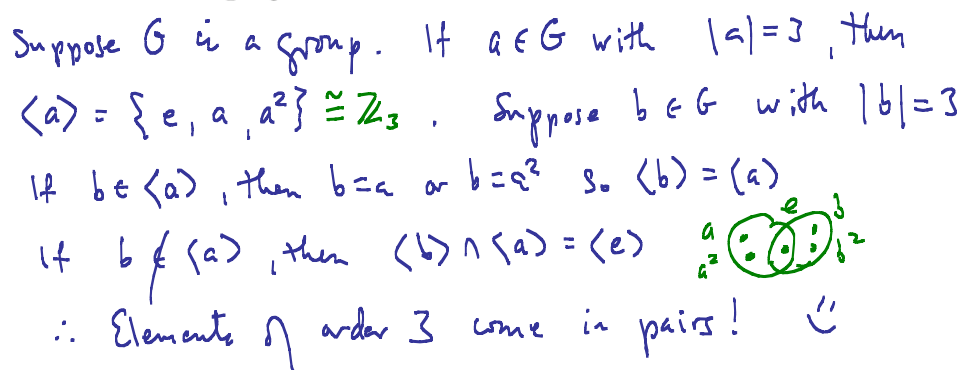 Suppose G is a group. If a ∈ G with |a| = 3, then
⟨a⟩ = { e, a, a² } ≅ ℤ₃ . Suppose b ∈ G with |b| = 3
If b ∈ ⟨a⟩, then b = a or b = a² so ⟨b⟩ = ⟨a⟩
If b ∉ ⟨a⟩, then ⟨b⟩ ∩ ⟨a⟩ = ⟨e⟩ a a² e b b²
∴ Elements of order 3 come in pairs! ☺